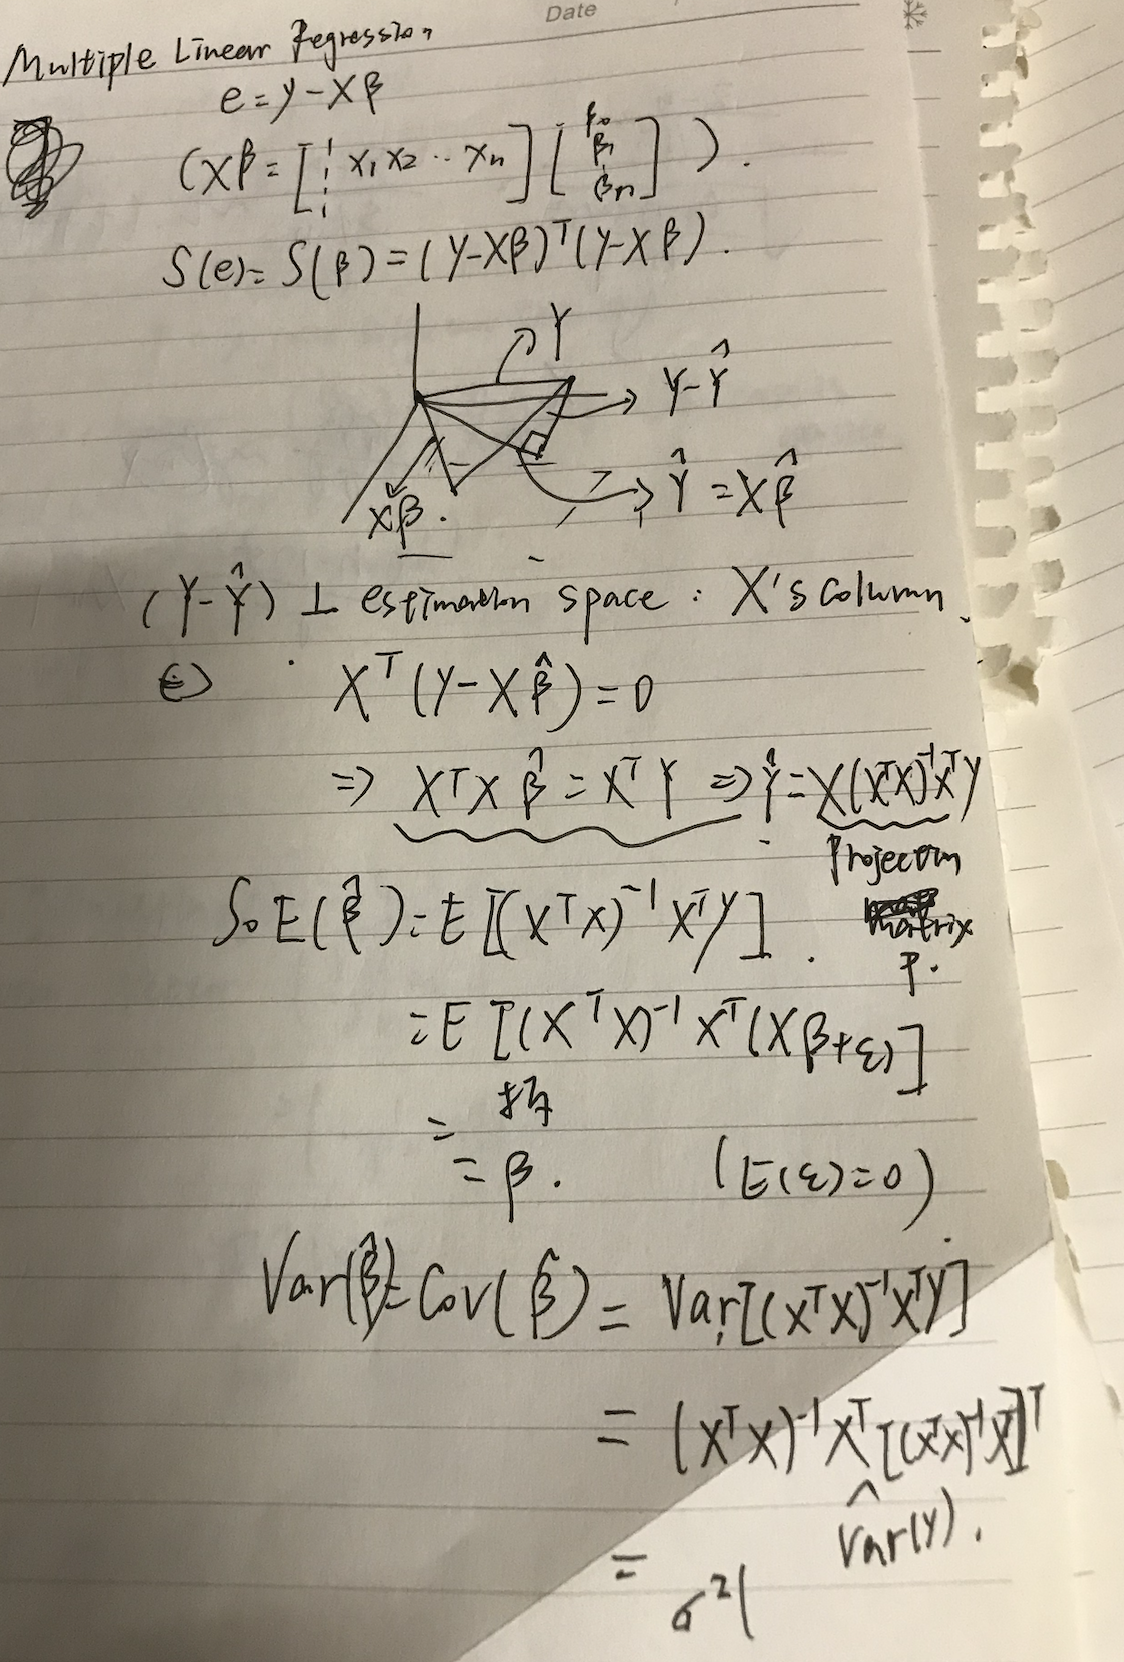 Date
Multiple Linear Regression
e = y - Xβ
(Xβ = [1 1 1 x₁ x₂ ·· xₙ] [β₀ β₁ βₙ]).
S(e) = S(β) = (Y-Xβ)ᵀ(Y-Xβ).
Y
Y-Ŷ
Xβ.
Ŷ = Xβ̂
(Y-Ŷ) ⊥ estimation space : X's column
Xᵀ(Y-Xβ̂) = 0
⇒ XᵀXβ̂ = XᵀY ⇒ Ŷ = X(XᵀX)⁻¹XᵀY
Projection
matrix
P.
So E(β̂) = E[(XᵀX)⁻¹XᵀY].
= E[(XᵀX)⁻¹Xᵀ(Xβ+ε)]
=
= β. (E(ε)=0)
Var(β̂) = Cov(β̂) = Var[(XᵀX)⁻¹XᵀY]
= (XᵀX)⁻¹Xᵀ[(XᵀX)⁻¹Xᵀ]ᵀ
^
Var(Y).
= σ²(